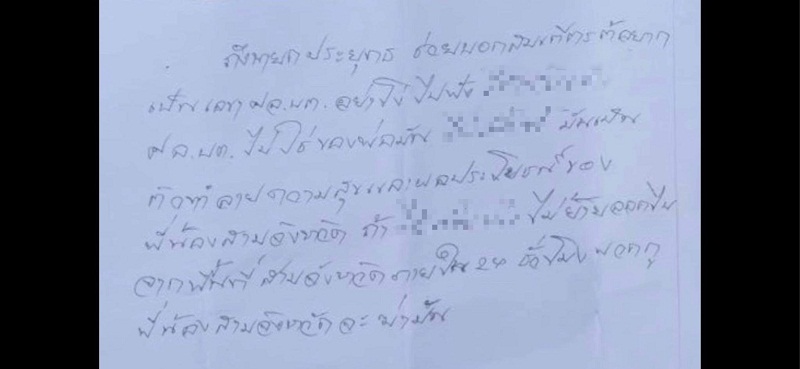 ถึงนายกประยุทธ ช่วยบอก อยาก
เป็นเลขา ศอ.บต. อย่าโง่ ไปฟัง
ศอ.บต. ไม่ใช่ของพ่อมัน มันเป็น
ตัวทำลายความสุขและผลประโยชน์ของ
พี่น้องสามจังหวัด ถ้า ไม่ย้ายออกไป
จากพื้นที่สามจังหวัดภายใน 24 ชั่วโมง พวกกู
พี่น้องสามจังหวัดจะฆ่ามัน